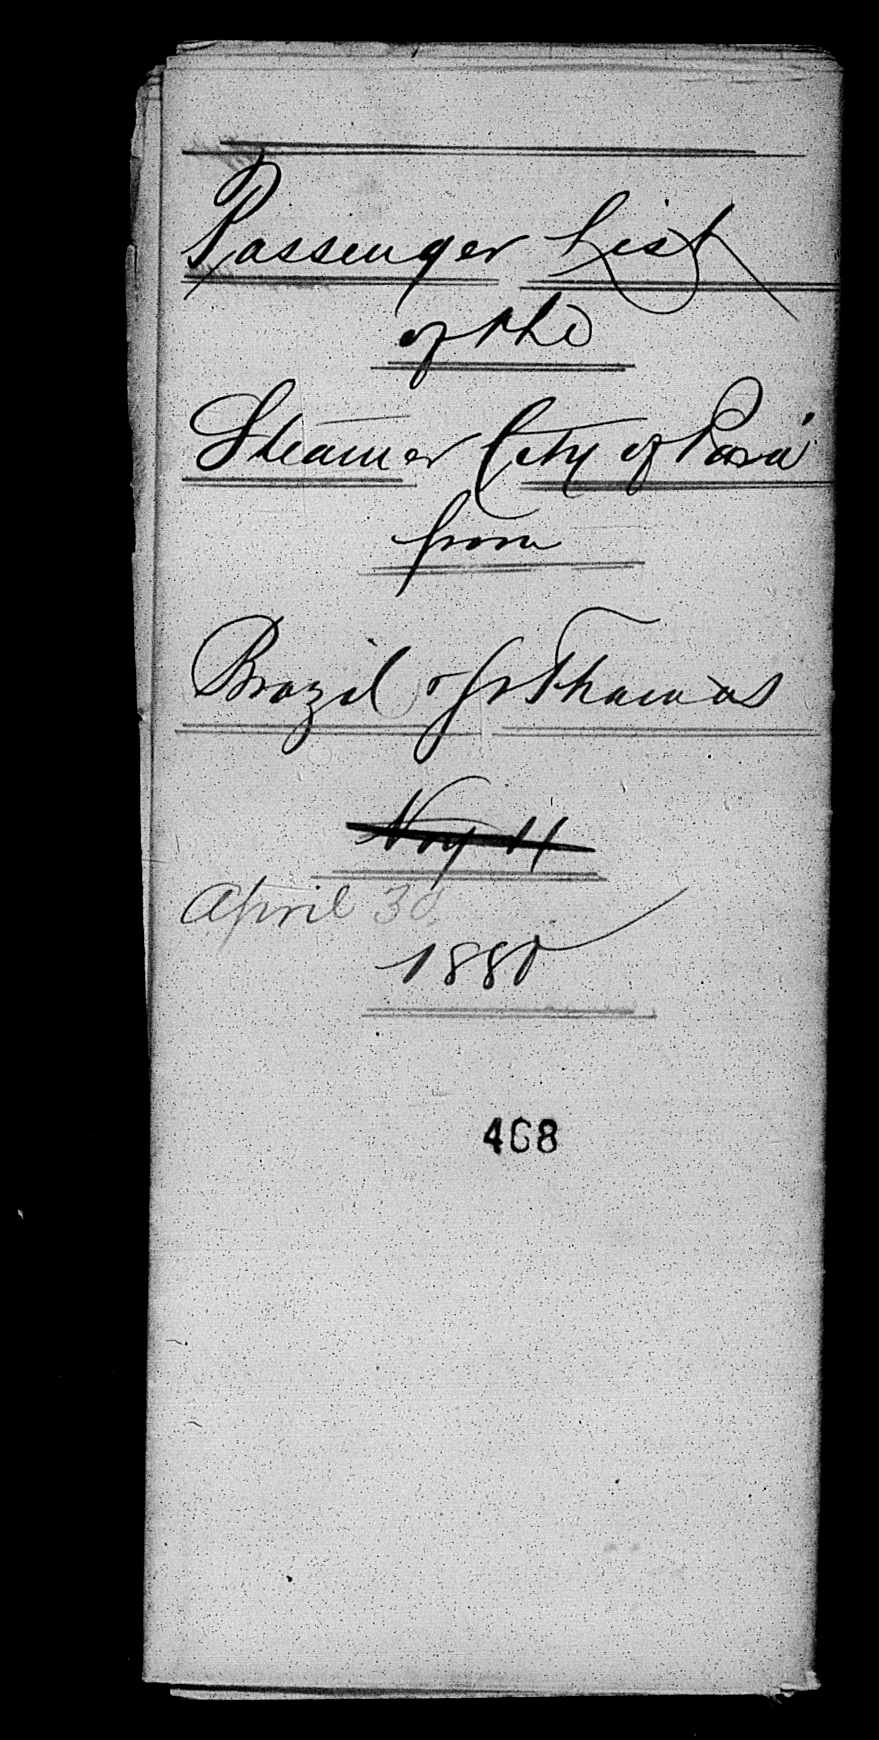 Passenger List
of the
Steamer City of Pará
from
Brazil & St Thomas
April 30
1880
468